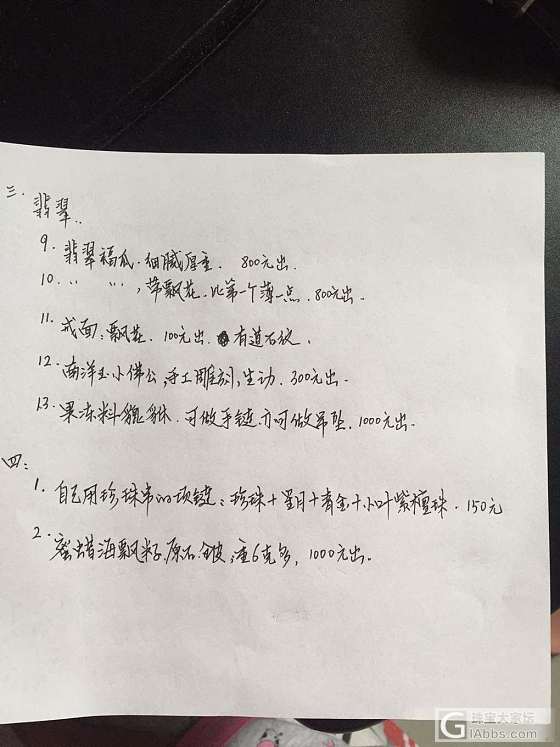 三. 翡翠..
9. 翡翠福瓜. 细腻厚重. 800元出.
10. ‥ ‥, 带飘花. 比第一个薄一点. 800元出.
11. 戒面: 飘花. 100元出. 有道石纹.
12. 南洋玉小佛公, 手工雕刻, 生动. 300元出.
13. 果冻料貔貅. 可做手链. 亦可做吊坠. 1000元出.
四:
1. 自己用珍珠串的项链: 珍珠+星月+青金+小叶紫檀珠. 150元
2. 蜜蜡海飘籽. 原石. 全皮, 重6克多, 1000元出.
珠宝大家坛
GIAbbs.com